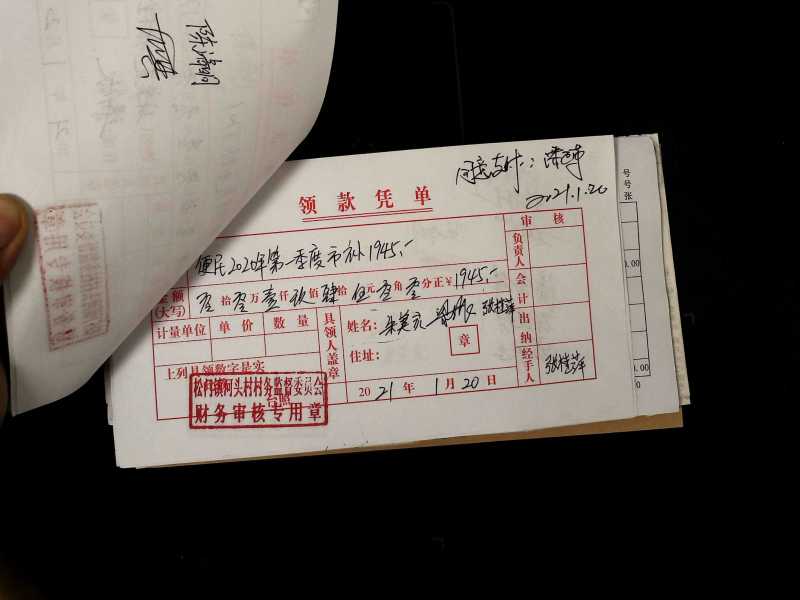 领款凭单
同意支付:
2021.1.20
审核
便民2020年第一季度市补1945.-
负责人
金额
(大写)
零拾零万壹仟玖佰肆拾伍元零角零分正¥1945.-
会计
计量单位 单价 数量
具领人盖章
姓名: 张桂萍
住址:
章
出纳
上列具领数字是实
台照
2021年1月20日
经手人
张桂萍
松门镇河头村村务监督委员会
财务审核专用章
号
号
张
0.00
0.00